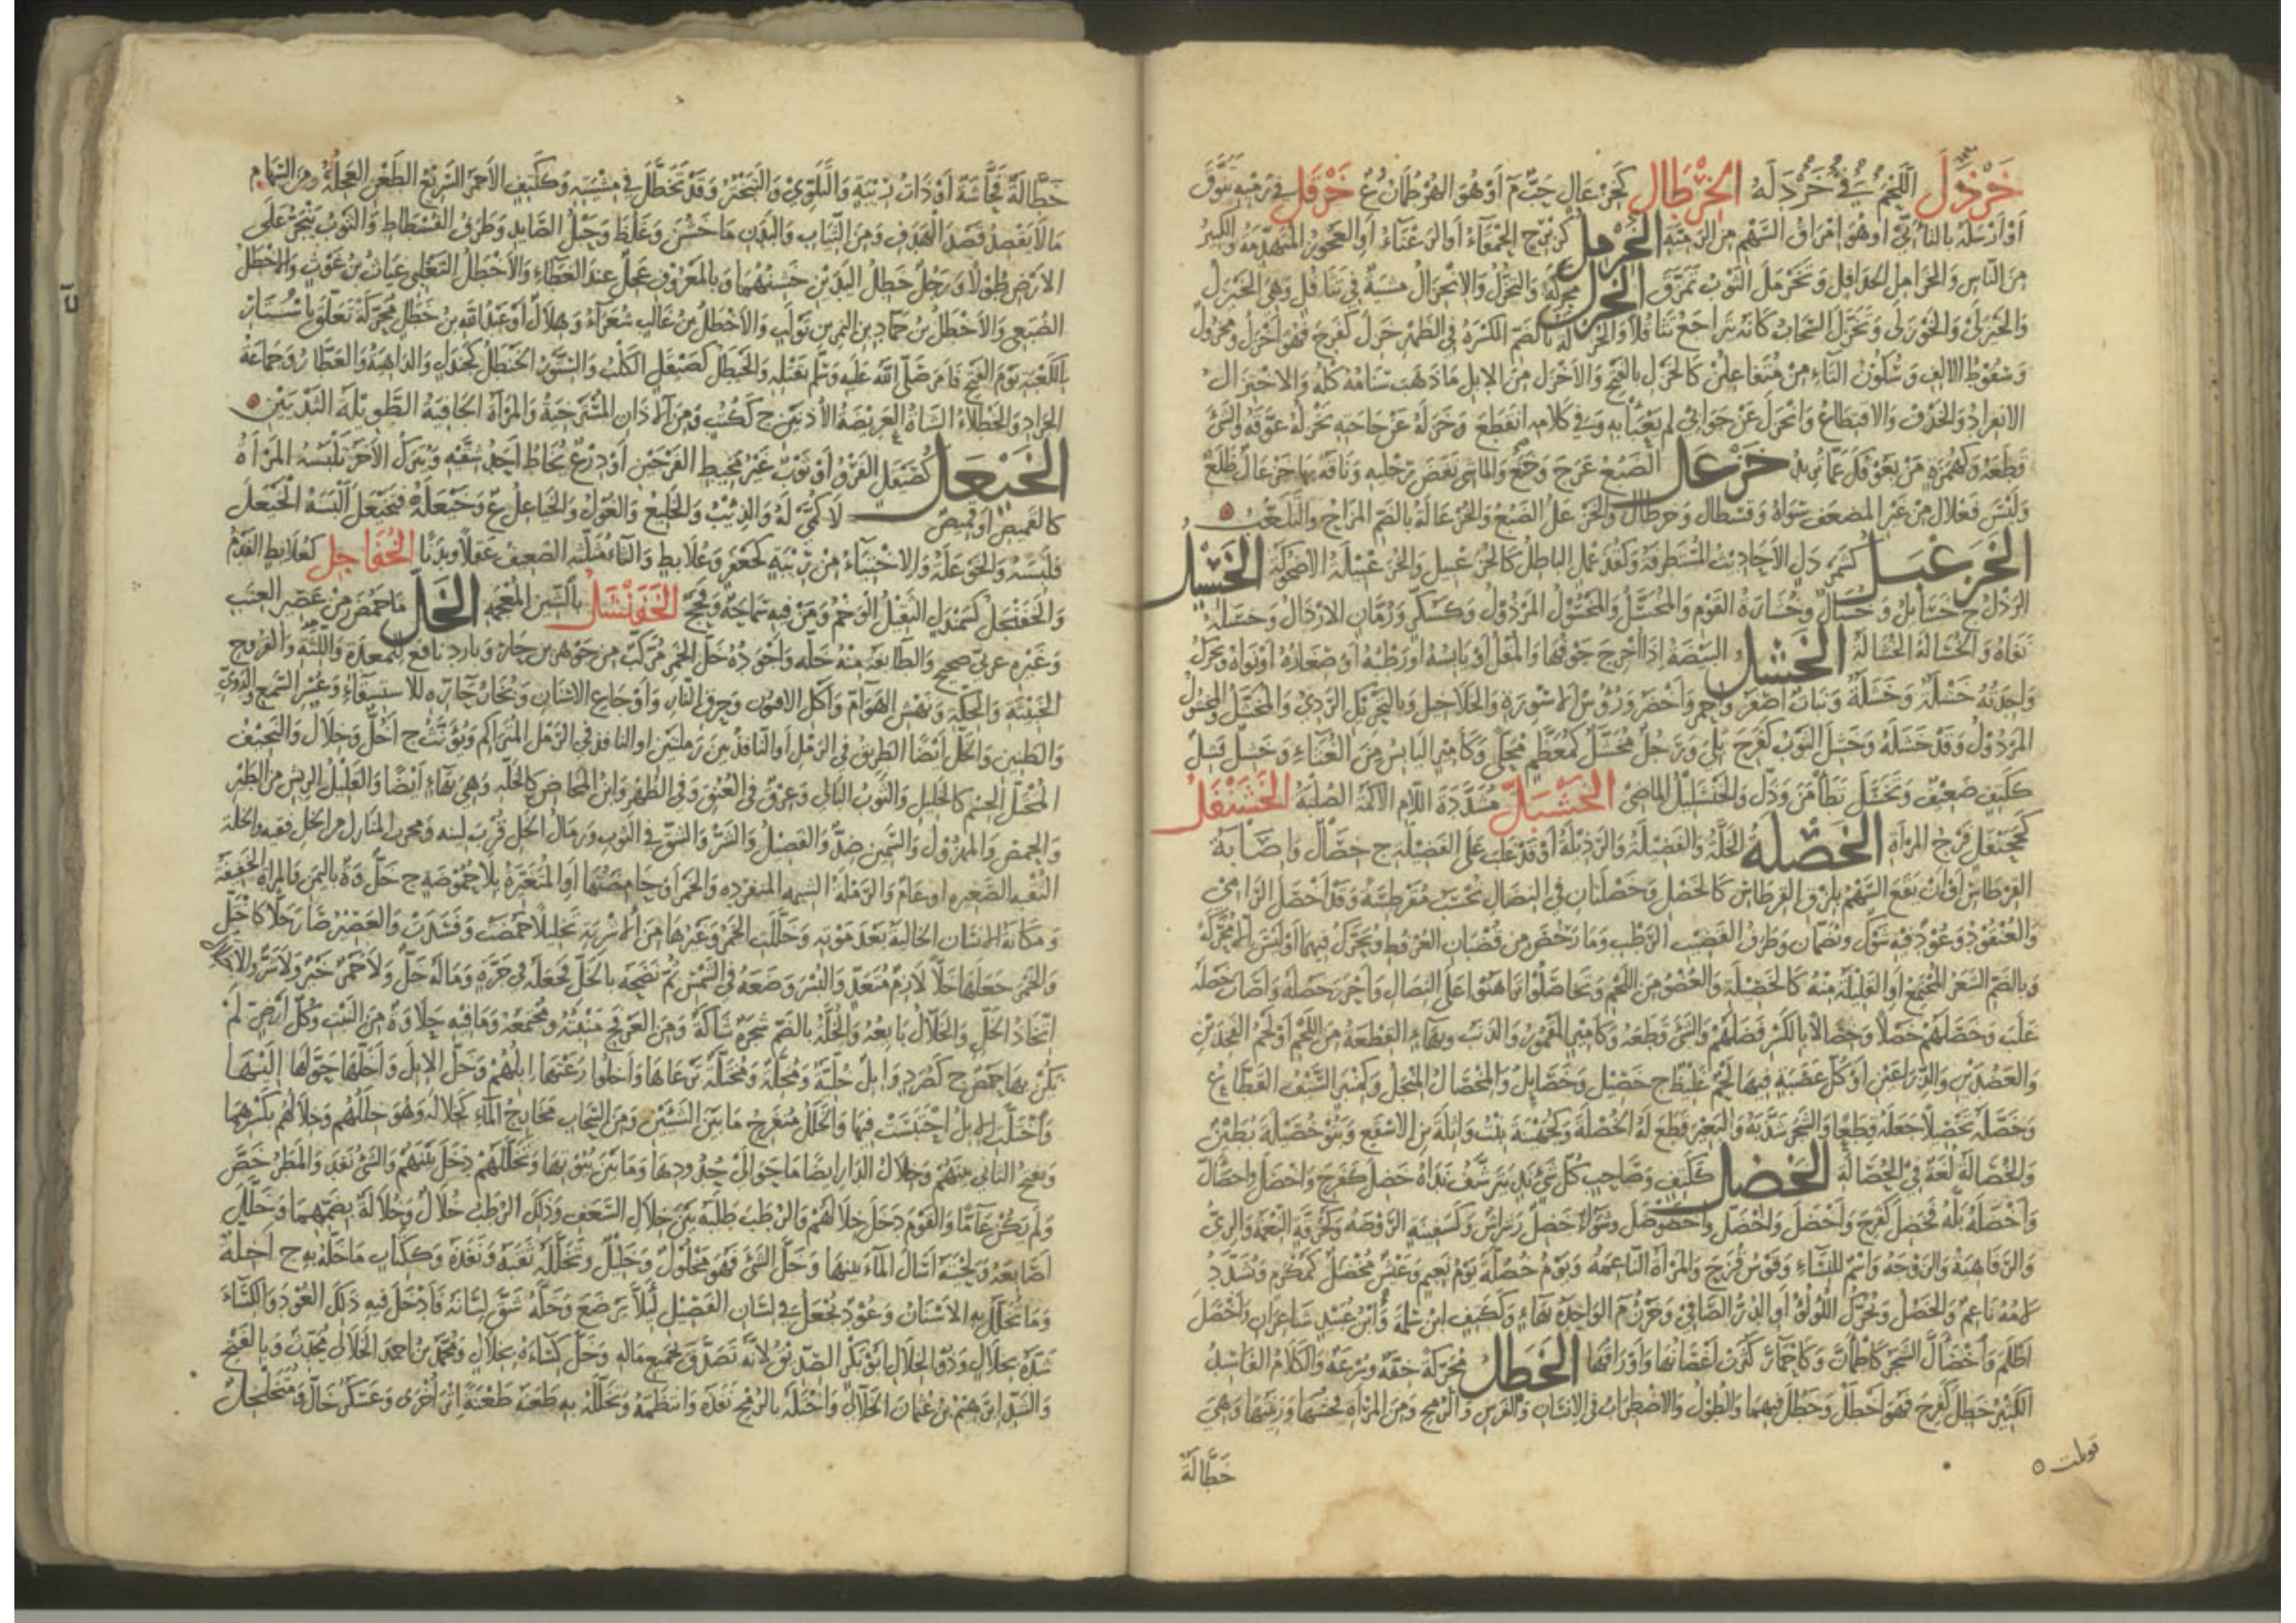 خَرْذَلَ اللَّحْمَ لُغَةٌ فِي خَرْدَلَهُ الخَرْطَالُ كَخَزْعَالٍ حَبٌّ م أَوْ هُوَ الهُرْطُمَانُ خَرْقَلَ فِي رَمْيِهِ تَنَوَّقَ
أَوْ أَرْسَلَهُ بِالتَّأَنِّي أَوْ هُوَ امْرَاقُ السَّهْمِ مِنَ الرَّمِيَّةِ الخِرْمِلُ كَزِبْرِجٍ الحَمْقَآءُ أَوِ الرَّعْنَآءُ أَوِ العَجُوزُ المُتَهَدِّمَةُ وَالكَبِيرُ
مِنَ النَّاسِ وَالخَرَامِلُ الخَدَافِلُ وَتَخَرْمَلَ الثَّوْبُ تَمَزَّقَ الخَزَلُ مُحَرَّكَةً وَالتَّخَزُّلُ وَالانْخِزَالُ مِشْيَةٌ فِي تَثَاقُلٍ وَهِيَ الخَيْزَلُ
وَالخَيْزَلَى وَالخَوْزَلَى وَتَخَزَّلَ السَّحَابُ كَأَنَّهُ يَتَرَاجَعُ تَثَاقُلًا وَالخُزْلَةُ بِالضَّمِّ الكَسْرَةُ فِي الظَّهْرِ خَزِلَ كَفَرِحَ فَهُوَ أَخْزَلُ وَمَخْزُولٌ
وَسُقُوطُ الالِفِ وَسُكُونُ التَّاءِ مِنْ مُتَفَاعِلُنْ كَالخَزْلِ بِالفَتْحِ وَالأَخْزَلُ مِنَ الإِبِلِ مَا ذَهَبَ سَنَامُهُ كُلُّهُ وَالاخْتِزَالُ
الانْفِرَادُ وَالحَذْفُ وَالاقْتِطَاعُ وَانْخَزَلَ عَنْ جَوَابِي لَمْ يَعْبَأْ بِهِ وَفِي كَلَامِهِ انْقَطَعَ وَخَزَلَهُ عَنْ حَاجَتِهِ يَخْزِلُهُ عَوَّقَهُ وَالشَّيْ
قَطَعَهُ وَكَهُمَزَةٍ مَنْ يَعُوقُكَ عَمَّا تُرِيدُ خَزْعَلَ الضَّبُعُ عَرِجَ وَخَمَعَ وَالمَاشِي نَفَضَ رِجْلَيْهِ وَنَاقَةٌ بِهَا خَزْعَالٌ ظَلْعٌ
وَلَيْسَ فَعْلَالٌ مِنْ غَيْرِ المُضَعَّفِ سِوَاهُ وَقَسْطَالٌ وَخَرْطَالٌ وَالخَزْعَلُ الضَّبُعُ وَالخُزْعَالَةُ بِالضَّمِّ المِزَاحُ وَالتَّلَعُّبُ
الخُزَعْبِلُ كَشَمَرْدَلٍ الأَحَادِيثُ المُسْتَطْرَفَةُ وَكَقُذَعْمِلٍ البَاطِلُ كَالخُزَعْبِيلِ وَالخُزَعْبِلَةُ الأُضْحُوكَةُ الخَسِيلُ
الرَّذْلُ ج خَسَائِلُ وَخِسَالٌ وَخُسَارَةُ القَوْمِ وَالمُخَسَّلُ وَالمَخْسُولُ المَرْذُولُ وَكَسُكَّرٍ وَرُمَّانٍ الأَرْذَالُ وَخَسَلَهُ
نَفَاهُ وَالخُسَالَةُ الحُسَالَةُ الخَشْلُ البَيْضَةُ إِذَا أُخْرِجَ جَوْفُهَا وَالمُقْلُ أَوْ يَابِسُهُ أَوْ رَطْبُهُ أَوْ صِغَارُهُ أَوْ نَوَاهُ وَيُحَرَّكُ
وَاحِدَتُهُ خَشْلَةٌ وَخَشَلَةٌ وَنَبَاتٌ أَصْفَرُ وَأَحْمَرُ وَأَخْضَرُ وَرُؤُسُ الأَسْوِرَةِ وَالخَلَاخِيلِ وَبِالتَّحْرِيكِ الرَّدِيُ وَالمُخَشَّلُ وَالمَخْشُولُ
المَرْذُولُ وَقَدْ خَشَلَهُ وَخَشِلَ الثَّوْبُ كَفَرِحَ بَلِيَ وَرَجُلٌ مُخَشَّلٌ كَمُعَظَّمٍ مُحَلًّى وَكَأَمِيرٍ اليَابِسُ مِنَ الغُثَاءِ وَخَشِلٌ فَشِلٌ
كَكَتِفٍ ضَعِيفٌ وَتَخَشَّلَ تَطَأْمَنَ وَذَلَّ وَالخَنْشَلِيلُ المَاضِي الخَشْبَلُّ مُشَدَّدَةَ اللَّامِ الأَكَمَةُ الصُّلْبَةُ الخَشَنْفَلُ
كَجَحَنْفَلٍ فَرْجُ المَرْأَةِ الخَصْلَةُ الخَلَّةُ وَالفَضِيلَةُ وَالرَّذِيلَةُ أَوْ قَدْ غَلَبَ عَلَى الفَضِيلَةِ ج خِصَالٌ وَإِصَابَةُ
القِرْطَاسِ أَوْ أَنْ يَقَعَ السَّهْمُ بِلِزْقِ القِرْطَاسِ كَالخَصْلِ وَخَصْلَتَانِ فِي النِّضَالِ تُحْسَبُ مُقَرْطِسَةً وَقَدْ أَخْصَلَ الرَّامِي
وَالعُنْقُودُ وَعُودٌ فِيهِ شَوْكٌ وَيُضَمَّانِ وَطَرَفُ القَضِيبِ الرَّطْبِ وَمَا رَخُصَ مِنْ قُضْبَانِ العُرْفُطِ وَيُحَرَّكُ فِيهِمَا أَوْ لَيْسَ إِلَّا مُحَرَّكَةً
وَبِالضَّمِّ الشَّعَرُ المُجْتَمِعُ أَوِ القَلِيلَةُ مِنْهُ كَالخَصِيلَةِ وَالعُضْوُ مِنَ اللَّحْمِ وَتَخَاصَلُوا تَرَاهَنُوا عَلَى النِّضَالِ وَأَحْرَزَ خَصْلَهُ وَأَصَابَ خَصْلَهُ
غَلَبَ وَخَصَلَهُمْ خَصْلًا وَخِصَالًا بِالكَسْرِ فَضَلَهُمْ وَالشَّيْءَ قَطَعَهُ وَكَأَمِيرٍ المَقْمُورُ وَالذَّنَبُ وَبِهَاءٍ القِطْعَةُ مِنَ اللَّحْمِ أَوْ لَحْمُ الفَخِذَيْنِ
وَالعَضُدَيْنِ وَالذِّرَاعَيْنِ أَوْ كُلُّ عَصَبَةٍ فِيهَا لَحْمٌ غَلِيظٌ ج خَصِيلٌ وَخَصَائِلُ وَالمِخْصَالُ المِنْجَلُ وَكَمِنْبَرٍ السَّيْفُ القَطَّاعُ
وَخَصَّلَهُ تَخْصِيلًا جَعَلَهُ قِطَعًا وَالشَّجَرَ شَذَّبَهُ وَالبَعِيرَ قَطَعَ لَهُ الخُصْلَةَ وَكَجُهَيْنَةَ بِنْتُ وَاثِلَةَ بْنِ الأَسْقَعِ وَبَنُو خُصَيْلَةَ بُطَيْنٌ
وَالخُصَالَةُ لُغَةٌ فِي الحُصَالَةِ الخَضِلُ كَكَتِفٍ وَصَاحِبٍ كُلُّ شَيْ نَدٍ يَتَرَشَّفُ نَدَاهُ خَضِلَ كَفَرِحَ وَاخْضَلَّ وَاخْضَالَّ
وَأَخْضَلَهُ بَلَّهُ فَخَضِلَ كَفَرِحَ وَأَخْضَلَ وَاخْضَلَّ وَاخْضَوْضَلَ وَشِوَاءٌ خَضِلٌ رَشْرَاشٌ وَكَسَفِينَةٍ الرَّوْضَةُ وَكَحُزُقَّةٍ النَّعْمَةُ وَالرِّيُّ
وَالرَّفَاهِيَةُ وَالزَّوْجَةُ وَاسْمٌ لِلنِّسَاءِ وَقَوْسُ قُزَحَ وَالمَرْأَةُ النَّاعِمَةُ وَيَوْمُ خُضُلَّةٍ يَوْمُ نَعِيمٍ وَعَيْشٌ مُخْضَلٌّ كَمُكْرَمٍ وَتُشَدَّدُ
لَامُهُ نَاعِمٌ وَالخَضْلُ وَيُحَرَّكُ اللُّؤْلُؤُ أَوِ الدُّرُّ الصَّافِي وَخَرَزٌ م الوَاحِدَةُ بِهَاءٍ وَكَكَتِفٍ ابْنُ سَلَمَةَ وَابْنُ عُبَيْدٍ شَاعِرَانِ وَاخْضَلَّ
أَظْلَمَ وَاخْضَالَّ الشَّجَرُ كَاطْمَأَنَّ وَكَاحْمَارَّ كَثُرَتْ أَغْصَانُهَا وَأَوْرَاقُهَا الخَطَلُ مُحَرَّكَةً خِفَّةٌ وَسُرْعَةٌ وَالكَلَامُ الفَاسِدُ
الكَثِيرُ خَطِلَ كَفَرِحَ فَهُوَ أَخْطَلُ وَخَطِلٌ فِيهِمَا وَالطُّولُ وَالاضْطِرَابُ فِي الإِنْسَانِ وَالفَرَسِ وَالرُّمْحِ وَمِنَ المَرْأَةِ فُحْشُهَا وَرِيبَتُهَا وَهِيَ
خَطَّالَةٌ
خَطَّالَةٌ فَحَّاشَةٌ أَوْ ذَاتُ رِيبَةٍ وَالتَّلَوِّي وَالتَّبَخْتُرُ وَقَدْ تَخَطَّلَ فِي مِشْيَتِهِ وَكَكَتِفٍ الأَحْمَقُ السَّرِيعُ الطَّعْنِ العَجِلُهُ وَمِنَ السِّهَامِ
مَا لَا يَقْصِدُ قَصْدَ الهَدَفِ وَمِنَ الثِّيَابِ وَالبَدَنِ مَا خَشُنَ وَغَلُظَ وَحَبْلُ الصَّايِدِ وَطَرَفُ الفُسْطَاطِ وَالثَّوْبُ يَنْجَرُّ عَلَى
الأَرْضِ طُولًا وَرَجُلٌ خَطِلُ اليَدَيْنِ خَشِنُهُمَا وَبِالمَعْرُوفِ عَجِلٌ عِنْدَ العَطَاءِ وَالأَخْطَلُ التَّغْلِبِي غِيَاثُ بْنُ غَوْثٍ وَالأَخْطَلُ
الضُّبَعِي وَالأَخْطَلُ بْنُ حَمَّادِ بْنِ النَّمِرِ بْنِ تَوْلَبٍ وَالأَخْطَلُ بْنُ غَالِبٍ شُعَرَآءُ وَهِلَالٌ أَوْ عَبْدُ اللهِ بْنُ خَطَلٍ مُحَرَّكَةً تَعَلَّقَ بِأَسْتَارِ
الكَعْبَةِ يَوْمَ الفَتْحِ فَأَمَرَ صَلَّى اللهُ عَلَيْهِ وَسَلَّمَ بِقَتْلِهِ وَالخَيْطَلُ كَصَيْقَلٍ الكَلْبُ وَالسِّنَّوْرُ كَالخَنْطَلِ كَجَنْدَلٍ وَالدَّاهِيَةُ وَالعَطَّارُ وَجَمَاعَةُ
الجَرَادِ وَالخَطْلَاءُ الشَّاةُ العَرِيضَةُ الأُذُنَيْنِ ج كَكُتُبٍ وَمِنَ الآذَانِ المُسْتَرْخِيَةُ وَالمَرْأَةُ الجَافِيَةُ الطَّوِيلَةُ الثَّدْيَيْنِ
الخَيْعَلُ كَصَيْقَلٍ الفَرْوُ أَوْ ثَوْبٌ غَيْرُ مَخِيطِ الفَرْجَيْنِ أَوْ دِرْعٌ يُخَاطُ أَحَدُ شِقَّيْهِ وَيُتْرَكُ الآخَرُ تَلْبَسُهُ المَرْأَةُ
كَالقَمِيصِ أَوْ قَمِيصٌ لَا كُمَّيْ لَهُ وَالذِّئْبُ وَالخَلِيعُ وَالغُولُ وَالخَيَاعِلُ ع وَخَيْعَلَهُ فَتَخَيْعَلَ أَلْبَسَهُ الخَيْعَلَ
فَلَبِسَهُ وَالخَوْعَلَةُ الاخْتِبَآءُ مِنْ رِيبَةٍ كَجَعْفَرٍ وَعُلَابِطٍ الضَّعِيفُ عَقْلًا وَبَدَنًا الخُفَاجِلُ كَعُلَابِطٍ الفَدْمُ
وَالخَفَنْجَلُ كَسَمَنْدَلٍ الثَّقِيلُ الوَخْمُ وَمَنْ فِيهِ سَمَاجَةٌ وَفَحَجٌ الخَفَنْشَلُ بِالشِّينِ المُعْجَمَةِ الخَلُّ مَا حَمُضَ مِنْ عَصِيرِ العِنَبِ
وَغَيْرِهِ عَرَبِيٌّ صَحِيحٌ وَالطَّائِفَةُ مِنْهُ خَلَّةٌ وَأَجْوَدُهُ خَلُّ الخَمْرِ مُرَكَّبٌ مِنْ جَوْهَرَيْنِ حَارٍّ وَبَارِدٍ نَافِعٌ لِلْمَعِدَةِ وَاللِّثَةِ وَالقُرُوحِ
الخَبِيثَةِ وَالحِكَّةِ وَنَهْشِ الهَوَآمِّ وَأَكْلِ الأَفْيُونِ وَحَرْقِ النَّارِ وَأَوْجَاعِ الأَسْنَانِ وَبُخَارُ حَارِّهِ لِلاسْتِسْقَآءِ وَعُسْرِ السَّمْعِ وَالدَّوِيِّ
وَالطَّنِينِ وَالخَلُّ أَيْضًا الطَّرِيقُ فِي الرَّمْلِ أَوِ النَّافِذُ بَيْنَ رَمْلَتَيْنِ أَوِ النَّافِذُ فِي الرَّمْلِ المُتَرَاكِمِ وَيُؤَنَّثُ ج أَخُلٌّ وَخِلَالٌ وَالنَّحِيفُ
المُخْتَلُّ الجِسْمِ كَالخَلِيلِ وَالثَّوْبُ البَالِي وَعِرْقٌ فِي العُنُقِ وَفِي الظَّهْرِ وَابْنُ المَخَاضِ كَالخَلَّةِ وَهِيَ بِهَاءٍ أَيْضًا وَالقَلِيلُ الرِّيشِ مِنَ الطَّيْرِ
وَالحَمْضُ وَالمَهْزُولُ وَالسَّمِينُ ضِدٌّ وَالفَصِيلُ وَالشَّرُّ وَالشَّقُّ فِي الثَّوْبِ وَالخَلَّةُ
الثُّقْبَةُ الصَّغِيرَةُ أَوْ عَامٌّ وَالرَّمْلَةُ اليَتِيمَةُ المُنْفَرِدَةُ وَالخَمْرُ أَوْ حَامِضَتُهَا أَوِ المُتَغَيِّرَةُ بِلَا حُمُوضَةٍ ج خَلٌّ وَة بِاليَمَنِ وَالمَرْأَةُ الخَفِيفَةُ
وَمَكَانَةُ الإِنْسَانِ الخَالِيَةُ بَعْدَ مَوْتِهِ وَخَلَّلَتِ الخَمْرُ وَغَيْرُهَا مِنَ الأَشْرِبَةِ تَخْلِيلًا حَمُضَتْ وَفَسَدَتْ وَالعَصِيرُ صَارَ خَلًّا كَاخْتَلَّ
وَالخَمْرَ جَعَلَهَا خَلًّا لَازِمٌ مُتَعَدٍّ وَالبُسْرَ وَضَعَهُ فِي الشَّمْسِ ثُمَّ نَضَحَهُ بِالخَلِّ فَجَعَلَهُ فِي جَرَّةٍ وَمَالَهُ خَلٌّ وَلَا خَمْرٌ خَيْرٌ وَلَا شَرٌّ وَالاخْتِلَالُ
اتِّخَاذُ الخَلِّ وَالخَلَّالُ بَائِعُهُ وَالخُلَّةُ بِالضَّمِّ شَجَرَةٌ شَاكَةٌ وَمِنَ العَرْفَجِ مَنْبِتُهُ وَمُجْتَمَعُهُ وَمَا فِيهِ حَلَاوَةٌ مِنَ النَّبْتِ وَكُلُّ أَرْضٍ لَمْ
يَكُنْ بِهَا حَمْضٌ ج كَصُرَدٍ وَإِبِلٌ خُلِّيَّةٌ وَمُخِلَّةٌ وَمُخْتَلَّةٌ تَرْعَاهَا وَأَخَلُّوا رَعَتْهَا إِبِلُهُمْ وَخَلَّ الإِبِلَ وَأَخَلَّهَا حَوَّلَهَا إِلَيْهَا
وَاخْتَلَّتِ الإِبِلُ احْتَبَسَتْ فِيهَا وَالخَلَلُ مُنْفَرَجُ مَا بَيْنَ الشَّيْئَيْنِ وَمِنَ السَّحَابِ مَخَارِجُ المَآءِ كَخِلَالِهِ وَهُوَ خِلَلُهُمْ وَخِلَالُهُمْ بِكَسْرِهِمَا
وَيُفْتَحُ الثَّانِي بَيْنَهُمْ وَخِلَالُ الدَّارِ أَيْضًا مَا حَوَالَيْ جُدُودِهَا وَمَا بَيْنَ بُيُوتِهَا وَتَخَلَّلَهُمْ دَخَلَ بَيْنَهُمْ وَالشَّيْءُ نَفَذَ وَالمَطَرُ خَصَّ
وَلَمْ يَكُنْ عَآمًّا وَالقَوْمَ دَخَلَ خِلَالَهُمْ وَالرُّطَبَ طَلَبَهُ بَيْنَ خِلَالِ السَّعَفِ وَذَلِكَ الرُّطَبُ خُلَالٌ وَخُلَالَةٌ بِضَمِّهِمَا وَخَلَّلَ
أَصَابِعَهُ وَلِحْيَتَهُ أَسَالَ المَآءَ بَيْنَهَا وَخَلَّ الشَّيْءَ فَهُوَ مَخْلُولٌ وَخَلِيلٌ وَتَخَلَّلَهُ ثَقَبَهُ وَنَفَذَهُ وَكَكِتَابٍ مَا خَلَّهُ بِهِ ج أَخِلَّةٌ
وَمَا تُخَلَّلُ بِهِ الأَسْنَانُ وَعُودٌ يُجْعَلُ فِي لِسَانِ الفَصِيلِ لِئَلَّا يَرْضَعَ وَخَلَّهُ شَقَّ لِسَانَهُ فَأَدْخَلَ فِيهِ ذَلِكَ العُودَ وَالكِسَاءَ
شَدَّهُ بِخِلَالٍ وَذُو الخِلَالِ أَبُو بَكْرٍ الصِّدِّيقُ لِأَنَّهُ تَصَدَّقَ بِجَمِيعِ مَالِهِ وَخَلَّ كِسَاءَهُ بِخِلَالٍ وَمُحَمَّدُ بْنُ أَحْمَدَ الخِلَالِي مُحَدِّثٌ وَبِالفَتْحِ
ابْرَاهِيمُ بْنُ عُثْمَانَ الخَلَالِي وَاخْتَلَّهُ بِالرُّمْحِ نَفَذَهُ وَانْتَظَمَهُ وَتَخَلَّلَهُ بِهِ طَعَنَهُ طَعْنَةً إِثْرَ أُخْرَى وَعَسْكَرٌ خَالٌّ وَمُتَخَلْخِلٌ